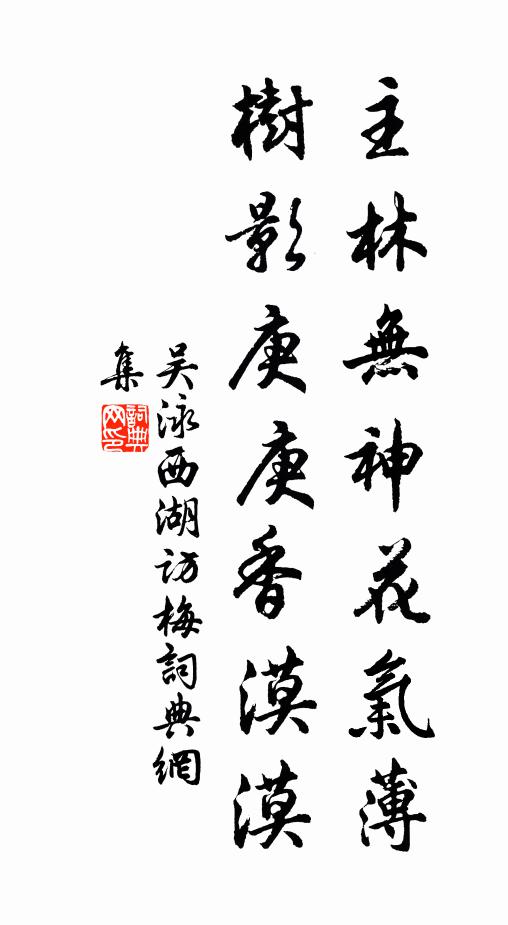 主林無神花氣薄
樹影庚庚香漠漠
吴泳西湖访梅詞典網
集
詞典
网印